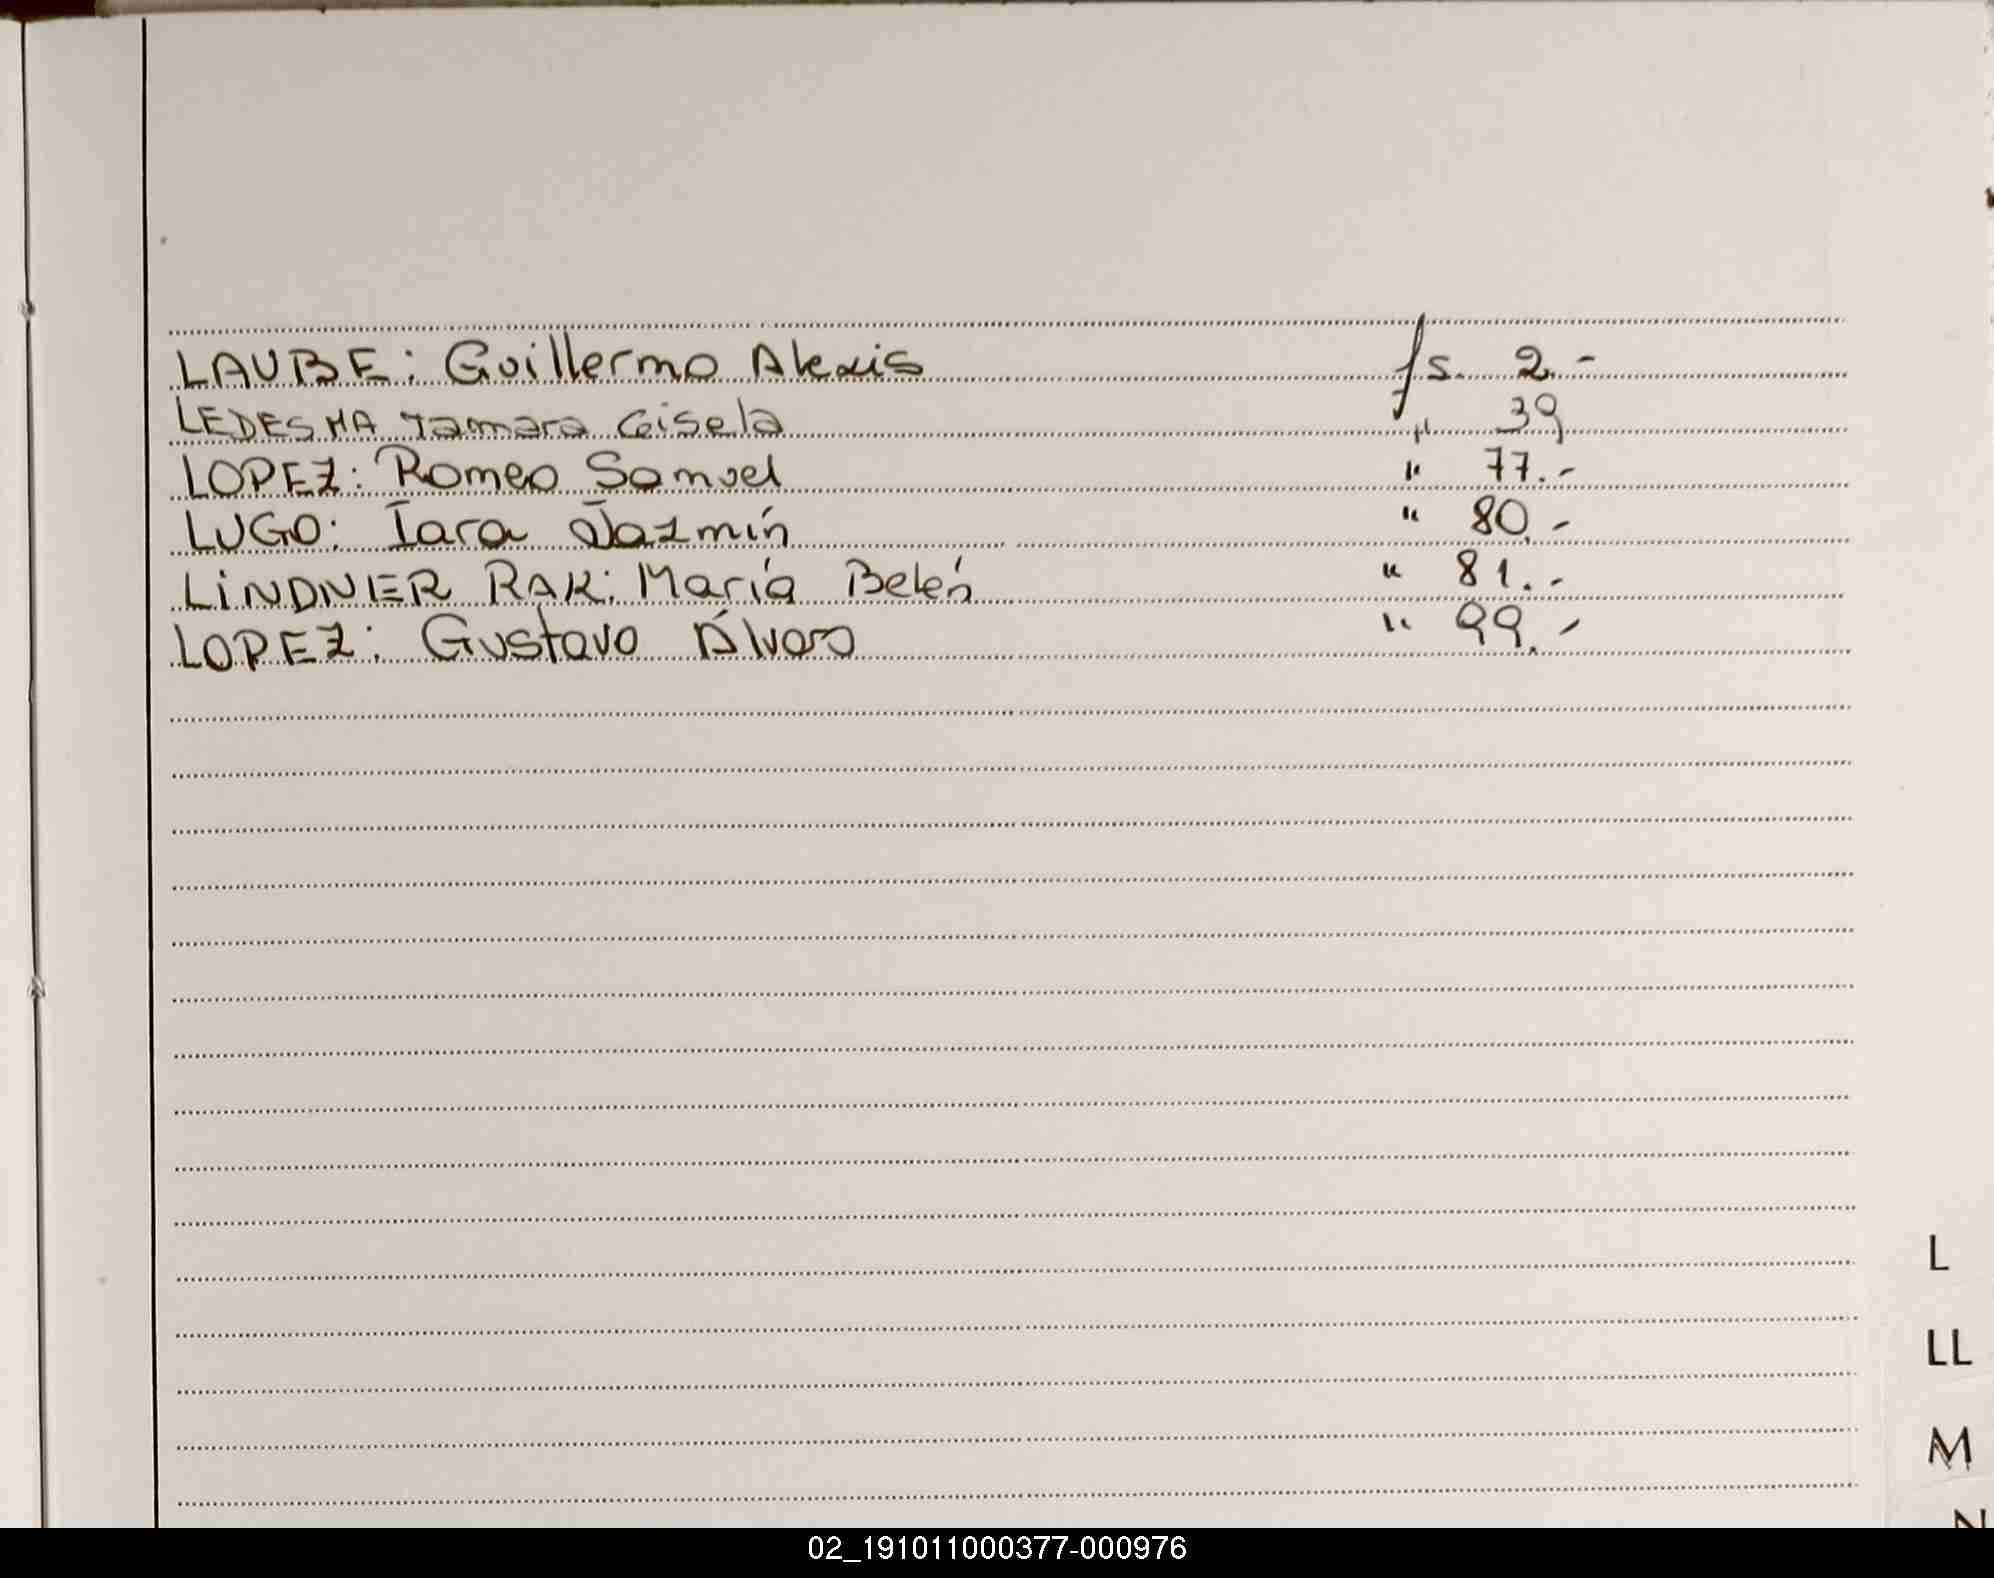 LAUBE: Guillermo Alexis fs. 2.-
LEDESMA Tamara Gisela " 39
LOPEZ: Romeo Samuel " 77.-
LUGO: Iara Jazmín " 80.-
LINDNER RAK: María Belén " 81.-
LOPEZ: Gustavo Álvaro " 99.-
L
LL
M
N
02_191011000377-000976